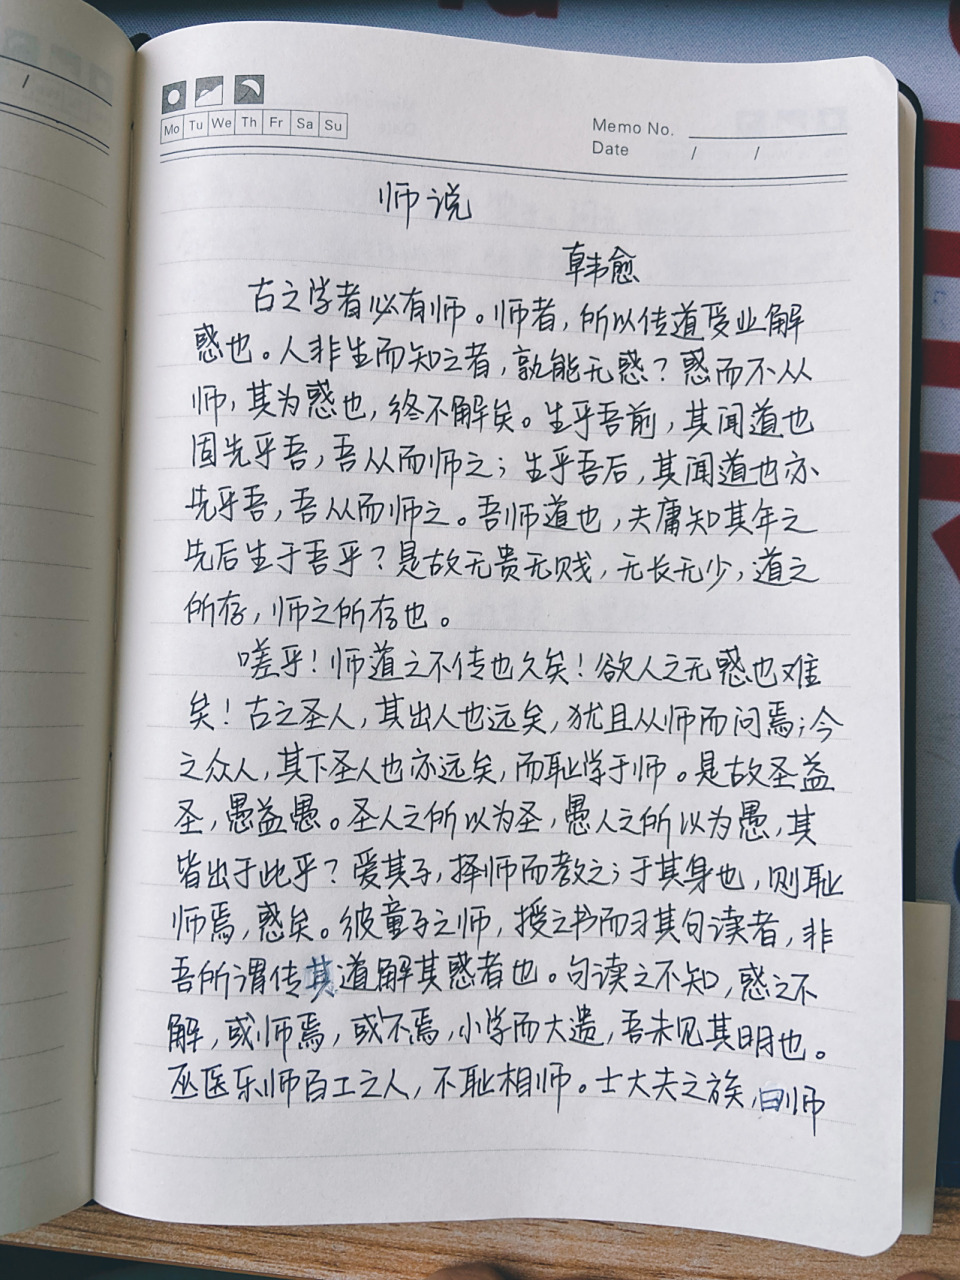 Mo Tu We Th Fr Sa Su
Memo No.
Date / /
师说
韩愈
古之学者必有师。师者，所以传道受业解
惑也。人非生而知之者，孰能无惑？惑而不从
师，其为惑也，终不解矣。生乎吾前，其闻道也
固先乎吾，吾从而师之；生乎吾后，其闻道也亦
先乎吾，吾从而师之。吾师道也，夫庸知其年之
先后生于吾乎？是故无贵无贱，无长无少，道之
所存，师之所存也。
嗟乎！师道之不传也久矣！欲人之无惑也难
矣！古之圣人，其出人也远矣，犹且从师而问焉；今
之众人，其下圣人也亦远矣，而耻学于师。是故圣益
圣，愚益愚。圣人之所以为圣，愚人之所以为愚，其
皆出于此乎？爱其子，择师而教之；于其身也，则耻
师焉，惑矣。彼童子之师，授之书而习其句读者，非
吾所谓传其道解其惑者也。句读之不知，惑之不
解，或师焉，或不焉，小学而大遗，吾未见其明也。
巫医乐师百工之人，不耻相师。士大夫之族，曰师